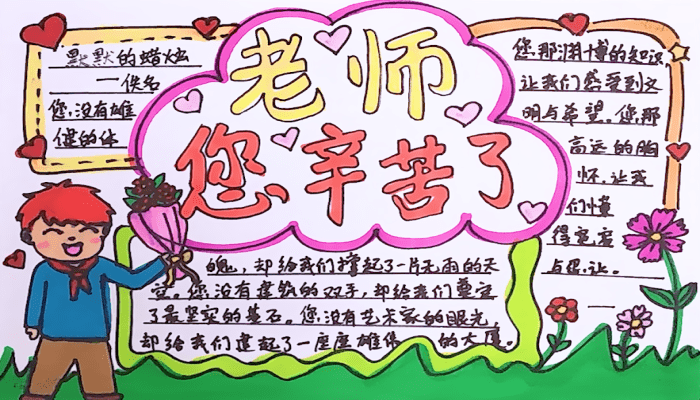 老师
您辛苦了
默默的蜡烛
一佚名
您,没有雄
健的体
魄,却给我们撑起了一片无雨的天
空。您没有建筑的双手,却给我们奠定
了最坚实的基石。您没有艺术家的眼光
却给我们建起了一座座雄伟 的大厦。
您那渊博的知识
让我们感受到文
明与希望。您那
高远的胸
怀,让我
们懂
得宽容
与忍让。